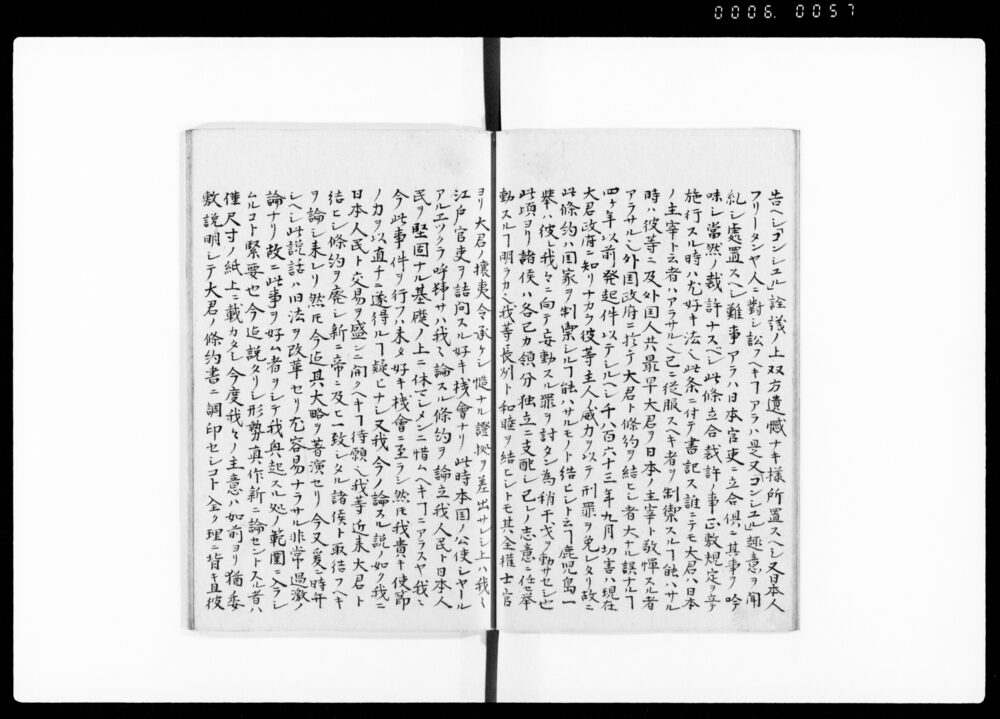 0006. 0057
告ヘシ「コンシュル」詮議ノ上双方遺憾ナキ様所置スヘシ又日本人
フリータンヤ人ニ對シ訟フヘキ丁アラハ是又「コンシュル」趣意ヲ聞
糺シ處置スヘシ難事アラハ日本官吏ニ立合俱ニ其事ヲ吟
味シ當然ノ裁許ナスベシ此條立合裁許ノ事正敷規定ヲ立テ
施行スル時ハ尤好キ法也此条ニ付テ書記ス誰ニテモ大君ハ日本
ノ主宰ト云者ハアラサル也己ニ從服スヘキ者ヲ制禦スル丁能ハサル
時ハ彼等ニ及外国人共最早大君ヲ日本ノ主宰ト敬憚スル者
アラサル也外国政府ニ於テ大君ト條約ヲ結ヒシ者大ナル誤ナル丁
四ヶ年以前発起件以テシルヘシ千八百六十三年九月切害ハ現在
大君政府ニ知リナカラ彼等主人ノ威力ヲ以テ刑罪ヲ免レタリ故ニ
此條約ハ国家ヲ制禦シル丁能ハサルモノト結ヒシト云丁鹿児島一
挙ハ彼レ我々ニ向テ妄動スル罪ヲ討タン為稍干戈ヲ動サセシ也
此頃ヨリ諸侯ハ各己カ領分独立ニ支配シ己レノ志意ニ任挙
動スル丁明ラカ也我等長州ト和睦ヲ結ヒシトモ其全權士官
ヨリ大君ノ攘夷令承ケシ慥ナル證拠ヲ差出サシ上ハ我ミ
江戸官吏ヲ詰問スル好キ機會ナリ此時本国ノ公使シヤール
アルエツクラ呼掃サハ我ミ論スル條約ヲ論立我人民ト日本人
民ヲ堅固ナル基礎ノ上ニ休マシメンニ惜ムヘキ丁ニアラスヤ我ミ
今此事件ヲ行フハ未タ好キ機會ニ至ラシ然モ我貴キ使節
ノカヲ以直チニ遂得ル丁疑ヒナシ又我今ノ論スル説ノ如ク我ニ
日本人民ト交易ヲ盛ンニ開クヘキ丁待願也我等近来大君ト
結ヒシ條約ヲ廃シ新ニ帝ニ及ヒ一致シタル諸侯ト取結フヘキ
ヲ論シ来レリ然モ今迄其大略ヲ著演セリ今又爰ニ時弁
シヘシ此説話ハ旧法ヲ改革セリ尤容易ナラサル非常過激ノ
論ナリ故ニ此事ヲ好ム者ヲシテ我與起スル処ノ範圍ニ入ラシ
ムルコト緊要也今迄説タリシ形勢真作新ニ論セントスル者ハ
僅尺寸ノ紙上ニ載カタシ今度我々ノ主意ハ如前ヨリ猶委
敷説明シテ大君ノ條約書ニ調印セシコト全ク理ニ背キ且彼